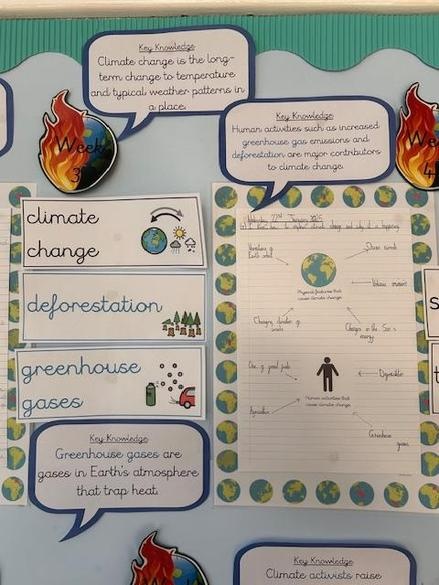 Key Knowledge
Climate change is the long-
term change to temperature
and typical weather patterns in
a place.
Key Knowledge
Human activities such as increased
greenhouse gas emissions and
deforestation are major contributors
to climate change.
Week
3
climate
change
deforestation
greenhouse
gases
Key Knowledge
Greenhouse gases are
gases in Earth's atmosphere
that trap heat.
Wednesday 22nd January 2025
climate change and why it is happening.
Earth's orbit
Volcanic eruptions
Physical features that
cause climate change
Changing direction of
winds
Changes in the Sun's
energy
Use of fossil fuels
Deforestation
Human activities that
cause climate change
Agriculture
Greenhouse
gases
Week
4
s
t
Week
Key Knowledge
Climate activists raise